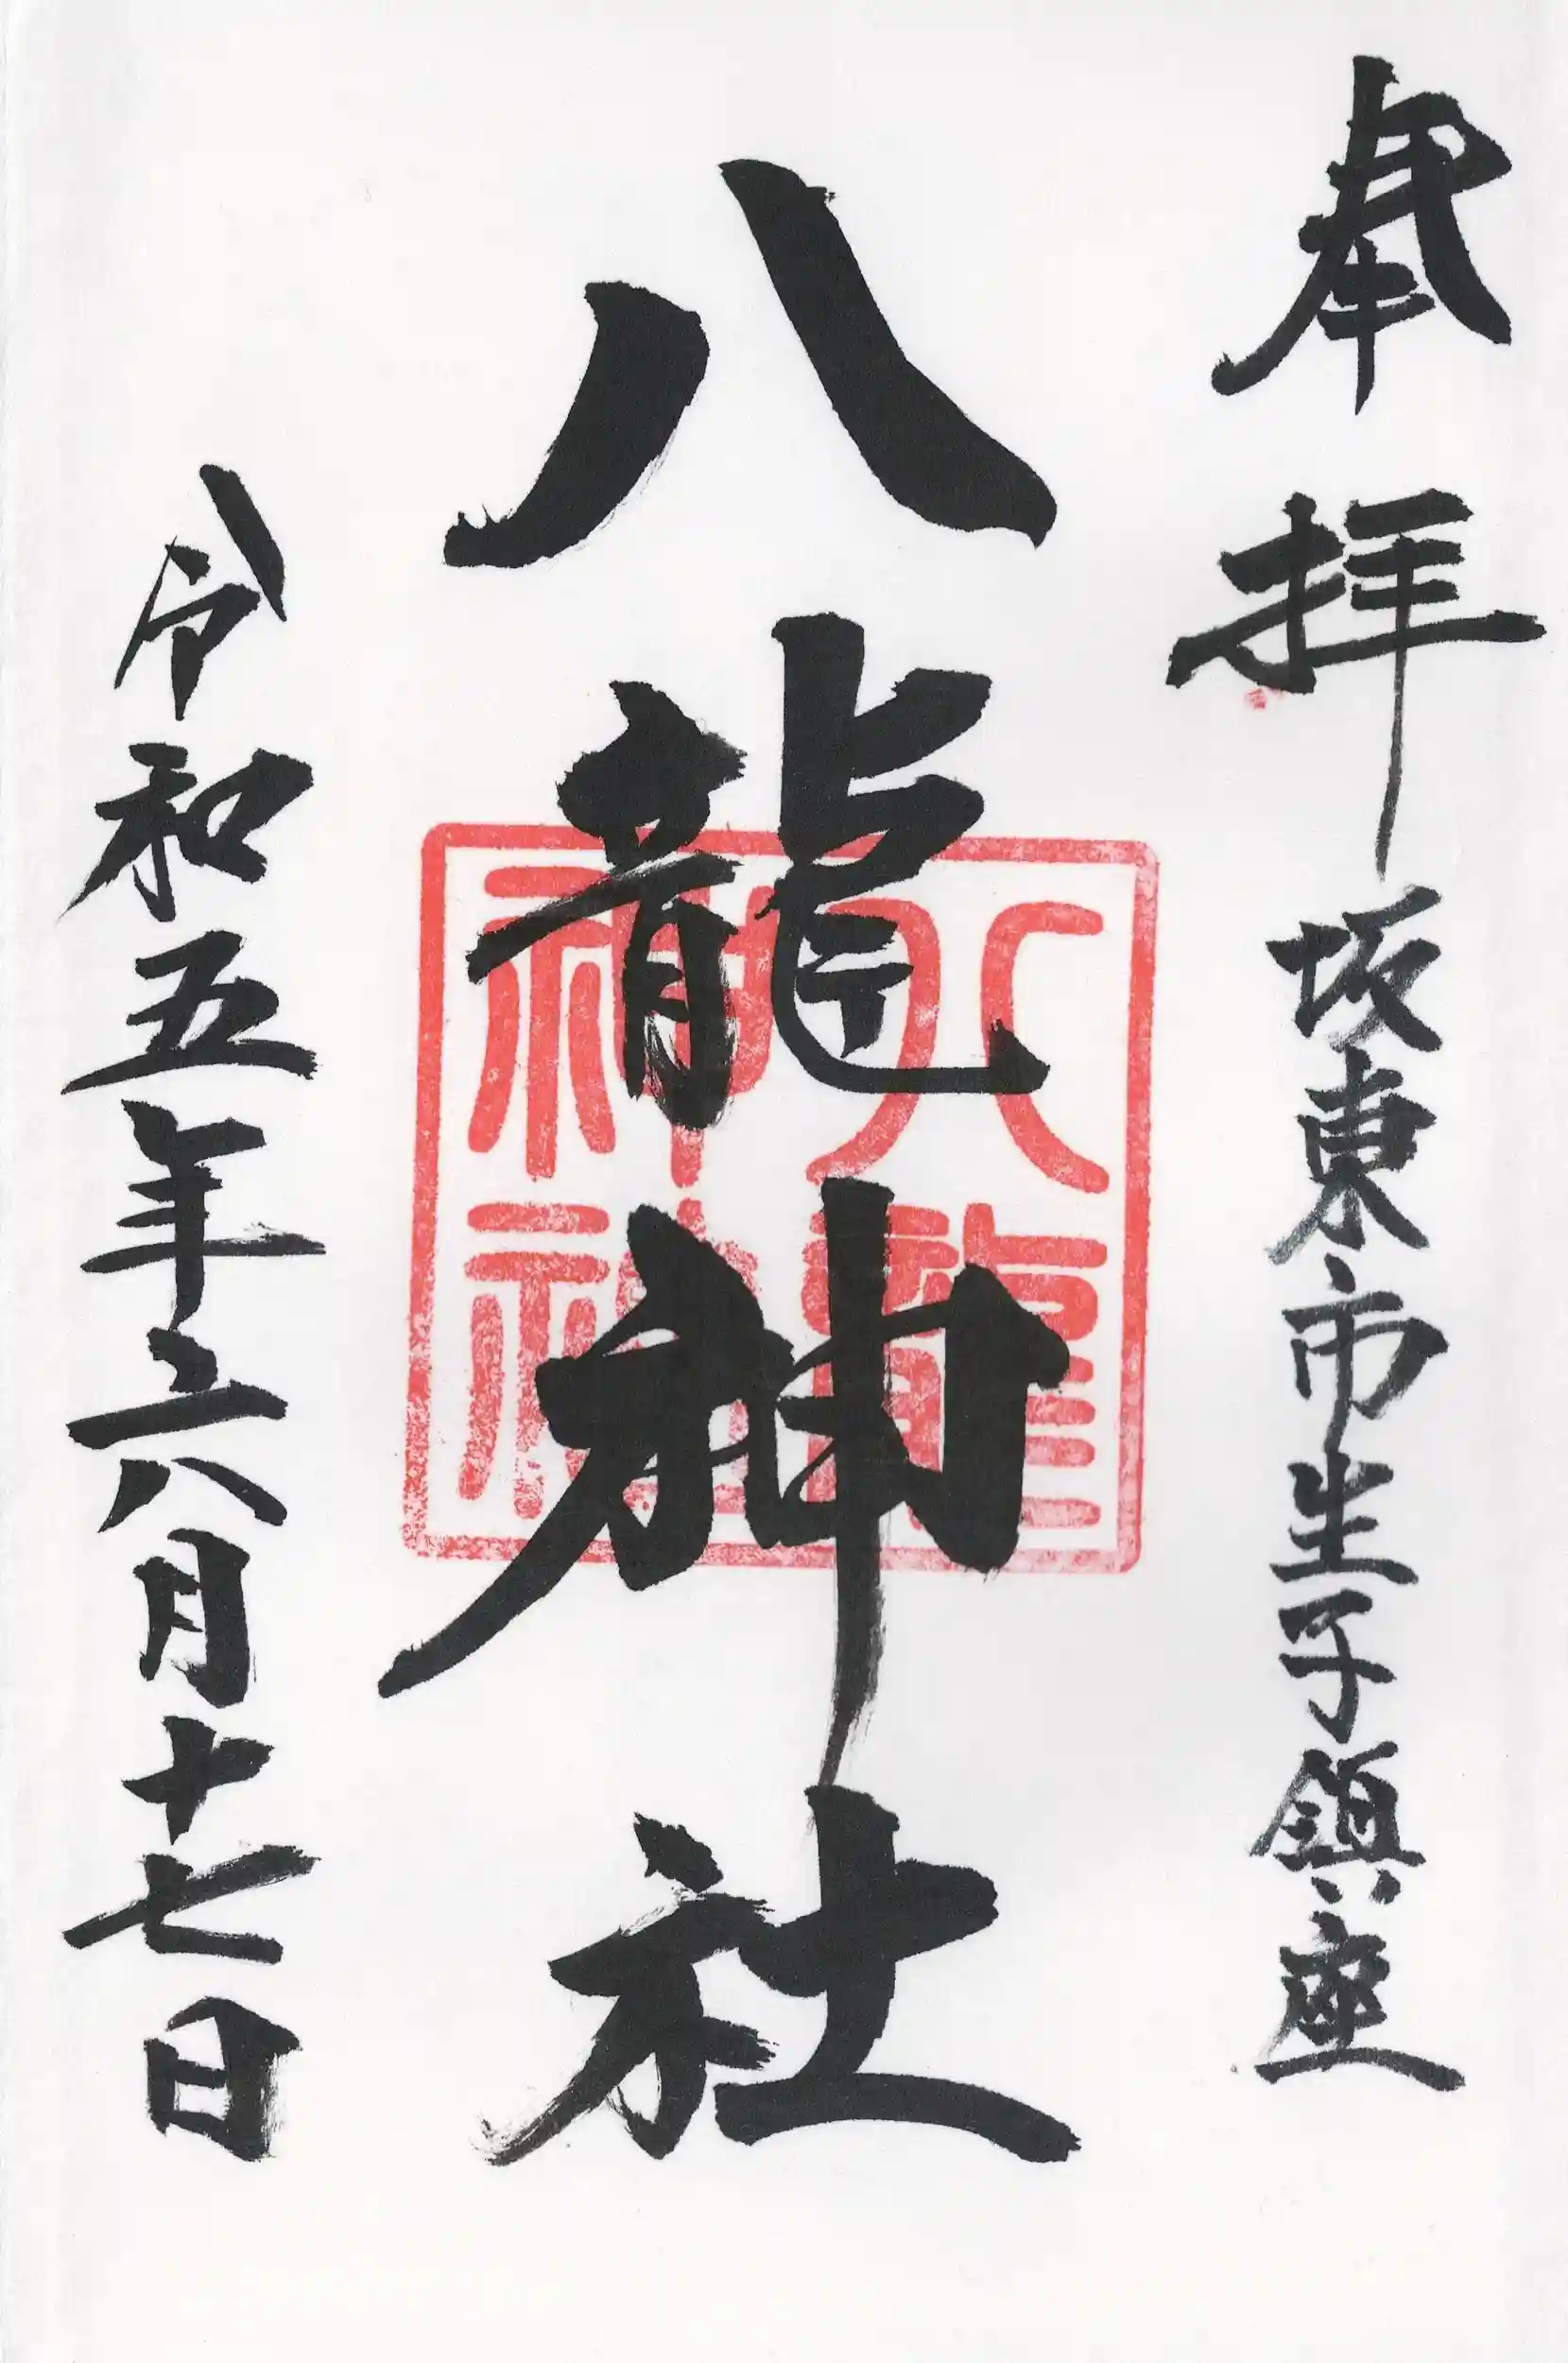 奉拝
坂東市生子鎮座
八龍神社
八龍
神社
令和五年六月十七日